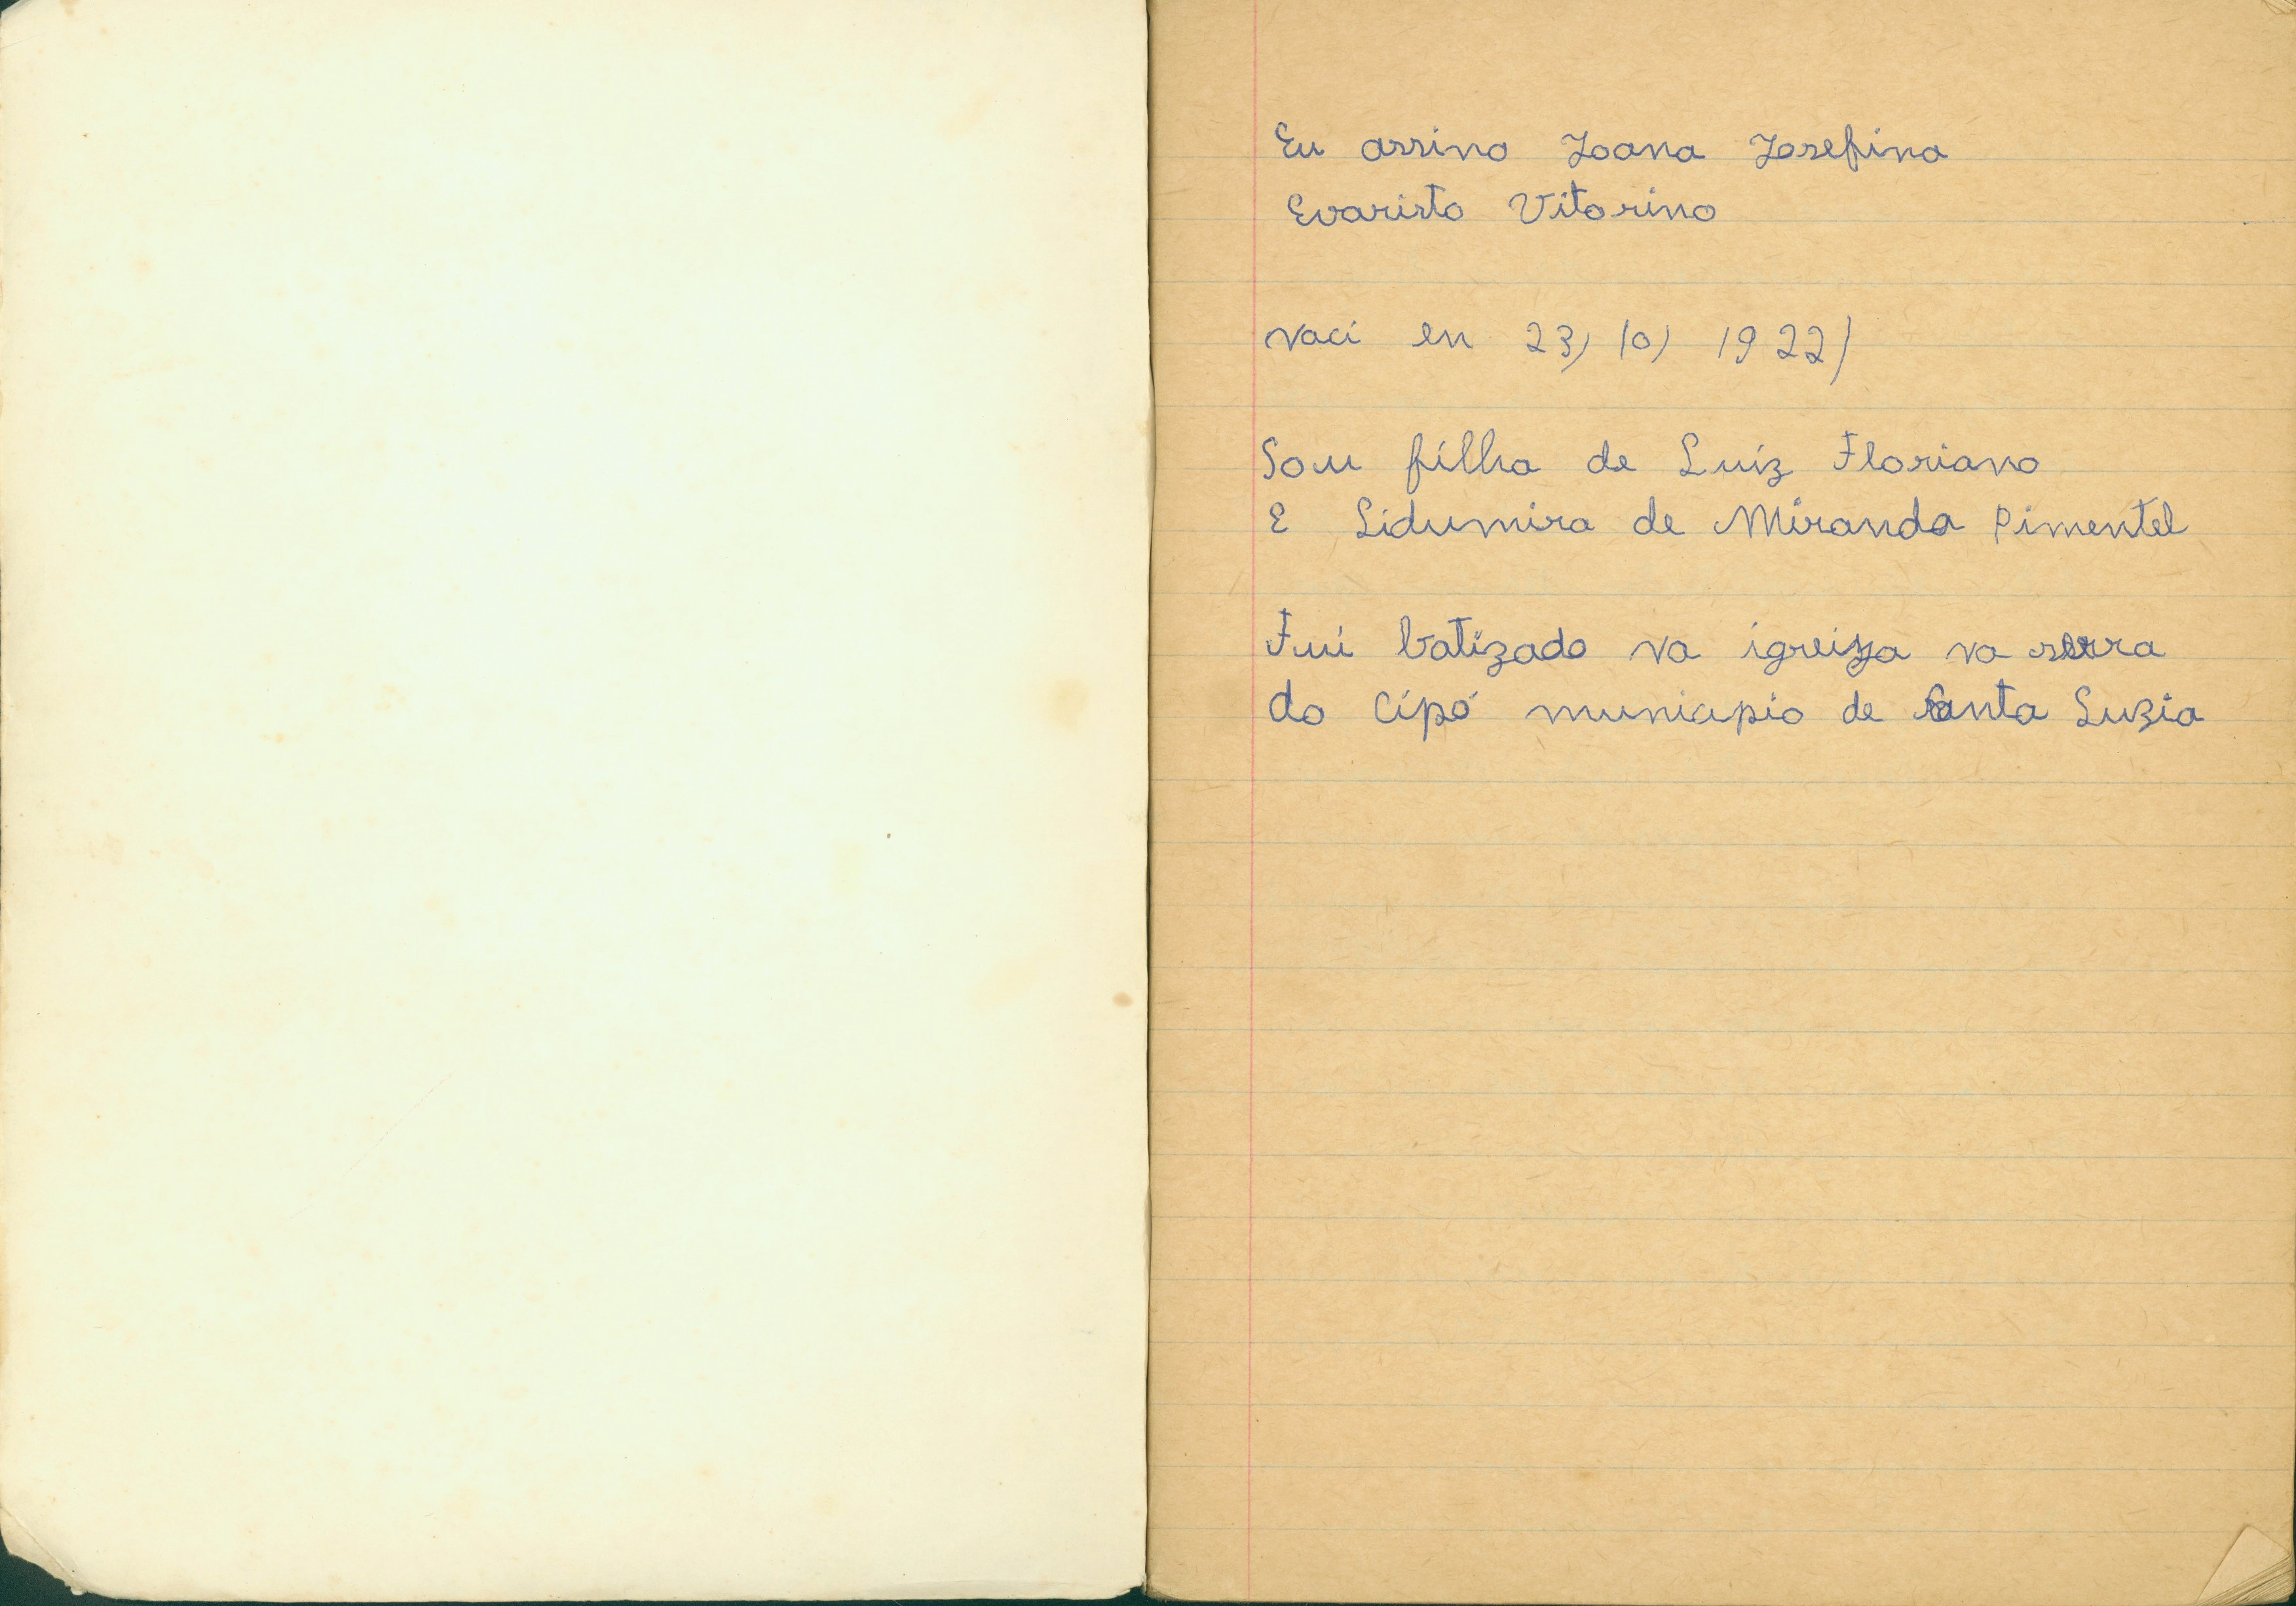 Eu assino Joana Josefina
Evaristo Vitorino
naci en 23/ 10/ 1922/
Sou filha de Luiz Floriano
E Lidumira de Miranda Pimentel
Fui batizada na igreija na serra
do Cipó municipio de Santa Luzia